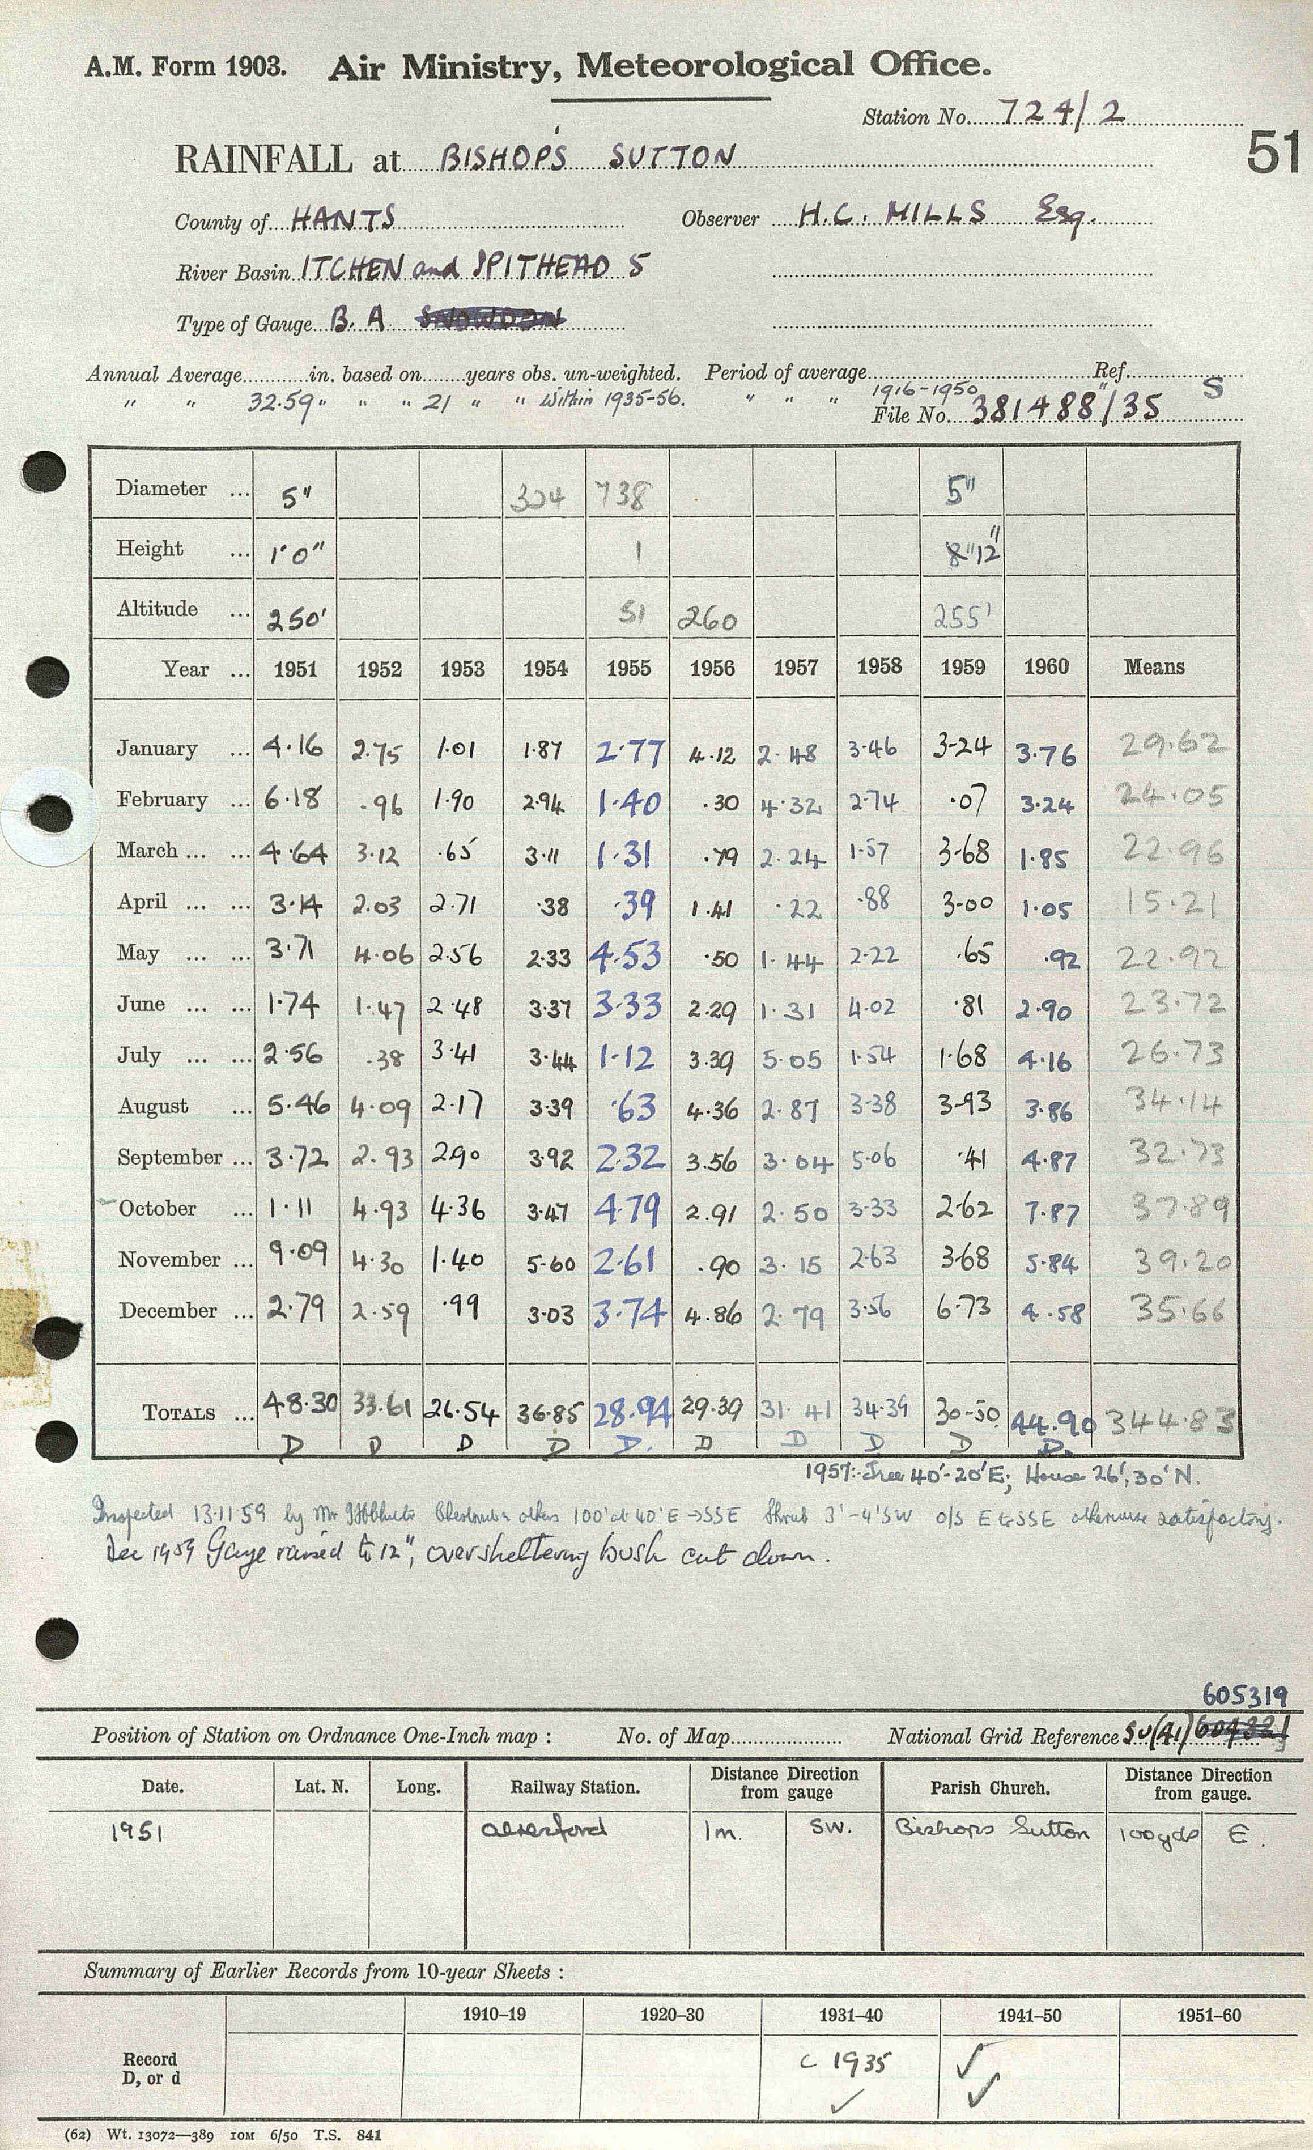 A.M. Form 1903. Air Ministry, Meteorological Office.
Station No. 724/2
51
RAINFALL at BISHOP'S SUTTON
County of HANTS Observer H.C. MILLS Esq.
River Basin ITCHEN and SPITHEAD 5
Type of Gauge B.A SNOWDON
Annual Average in. based on years obs. un-weighted. Period of average Ref.
" " 32.59" " " 21 " " Within 1935-56. " " " 1916-1950 " S
File No. 381488/35
Diameter ... 5" 304 738 5"
Height ... 1'0" 1 8" 12"
Altitude ... 250' 51 260 255'
Year ... 1951 1952 1953 1954 1955 1956 1957 1958 1959 1960 Means
January ... 4.16 2.75 1.01 1.87 2.77 4.12 2.48 3.46 3.24 3.76 29.62
February ... 6.18 .96 1.90 2.94 1.40 .30 4.32 2.74 .07 3.24 24.05
March ... ... 4.64 3.12 .65 3.11 1.31 .79 2.24 1.57 3.68 1.85 22.96
April ... ... 3.14 2.03 2.71 .38 .39 1.41 .22 .88 3.00 1.05 15.21
May ... ... 3.71 4.06 2.56 2.33 4.53 .50 1.44 2.22 .65 .92 22.92
June ... ... 1.74 1.47 2.48 3.37 3.33 2.29 1.31 4.02 .81 2.90 23.72
July ... ... 2.56 .38 3.41 3.44 1.12 3.39 5.05 1.54 1.68 4.16 26.73
August ... 5.46 4.09 2.17 3.39 .63 4.36 2.87 3.38 3.93 3.86 34.14
September ... 3.72 2.93 2.90 3.92 2.32 3.56 3.04 5.06 .41 4.87 32.73
October ... 1.11 4.93 4.36 3.47 4.79 2.91 2.50 3.33 2.62 7.87 37.89
November ... 9.09 4.30 1.40 5.60 2.61 .90 3.15 2.63 3.68 5.84 39.20
December ... 2.79 2.59 .99 3.03 3.74 4.86 2.79 3.56 6.73 4.58 35.66
TOTALS ... 48.30 33.61 26.54 36.85 28.94 29.39 31.41 34.39 30.50 44.90 344.83
D D D D D. D D D D D.
1957:- Tree 40'-20'E; House 26', 30'N.
Inspected 13.11.59 by Mr others 100' at 40' E→SSE Shrub 3'-4' SW o/s E to SSE otherwise satisfactory.
Dec 1959 Gauge raised to 12", oversheltering bush cut down.
605319
Position of Station on Ordnance One-Inch map : No. of Map National Grid Reference SU(41)
Date. Lat. N. Long. Railway Station. Distance Direction from gauge Parish Church. Distance Direction from gauge.
1951 Alresford 1m. SW. Bishops Sutton 100yds E.
Summary of Earlier Records from 10-year Sheets :
1910–19 1920–30 1931–40 1941–50 1951–60
Record D, or d c 1935 ✓ ✓ ✓
(62) Wt. 13072—389 10M 6/50 T.S. 841